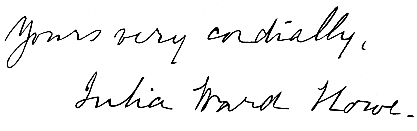 Yours very cordially,
Julia Ward Howe.